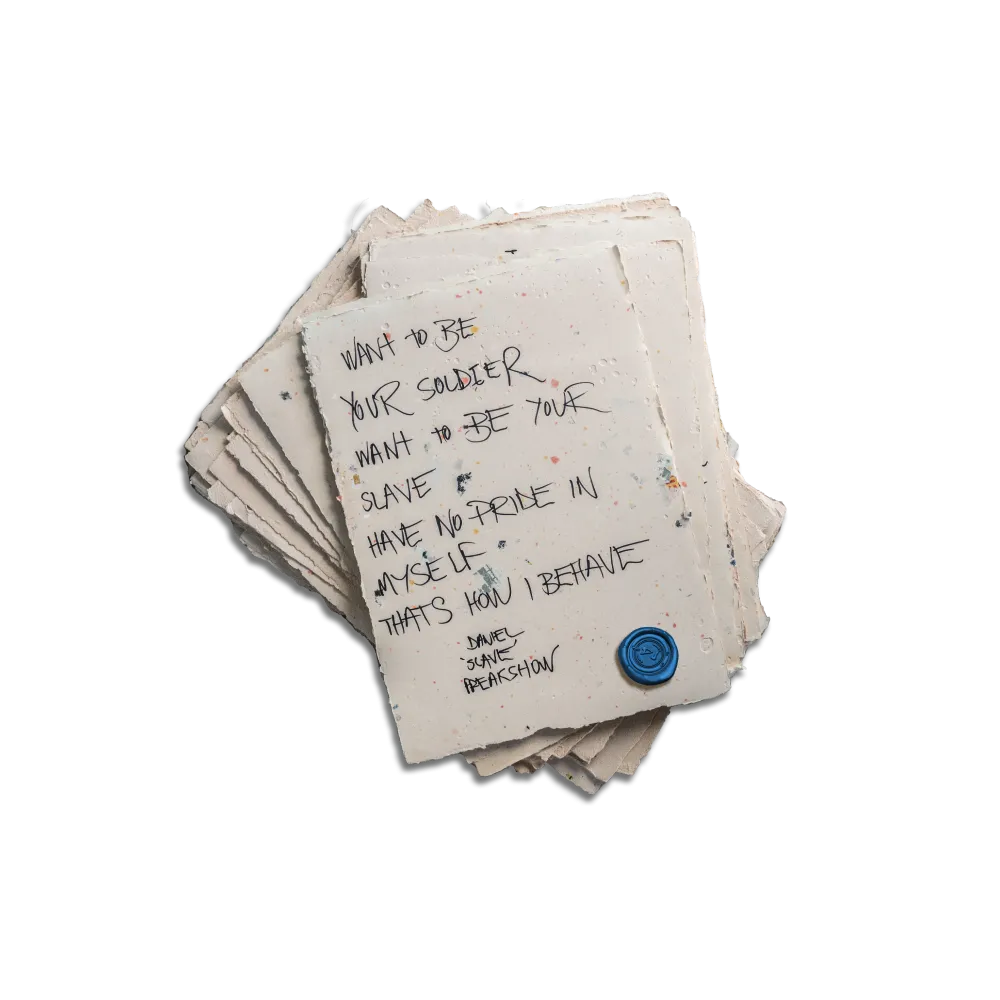 WANT TO BE
YOUR SOLDIER
WANT TO BE YOUR
SLAVE
HAVE NO PRIDE IN
MYSELF
THATS HOW I BEHAVE
DANIEL
'SLAVE'
FREAKSHOW